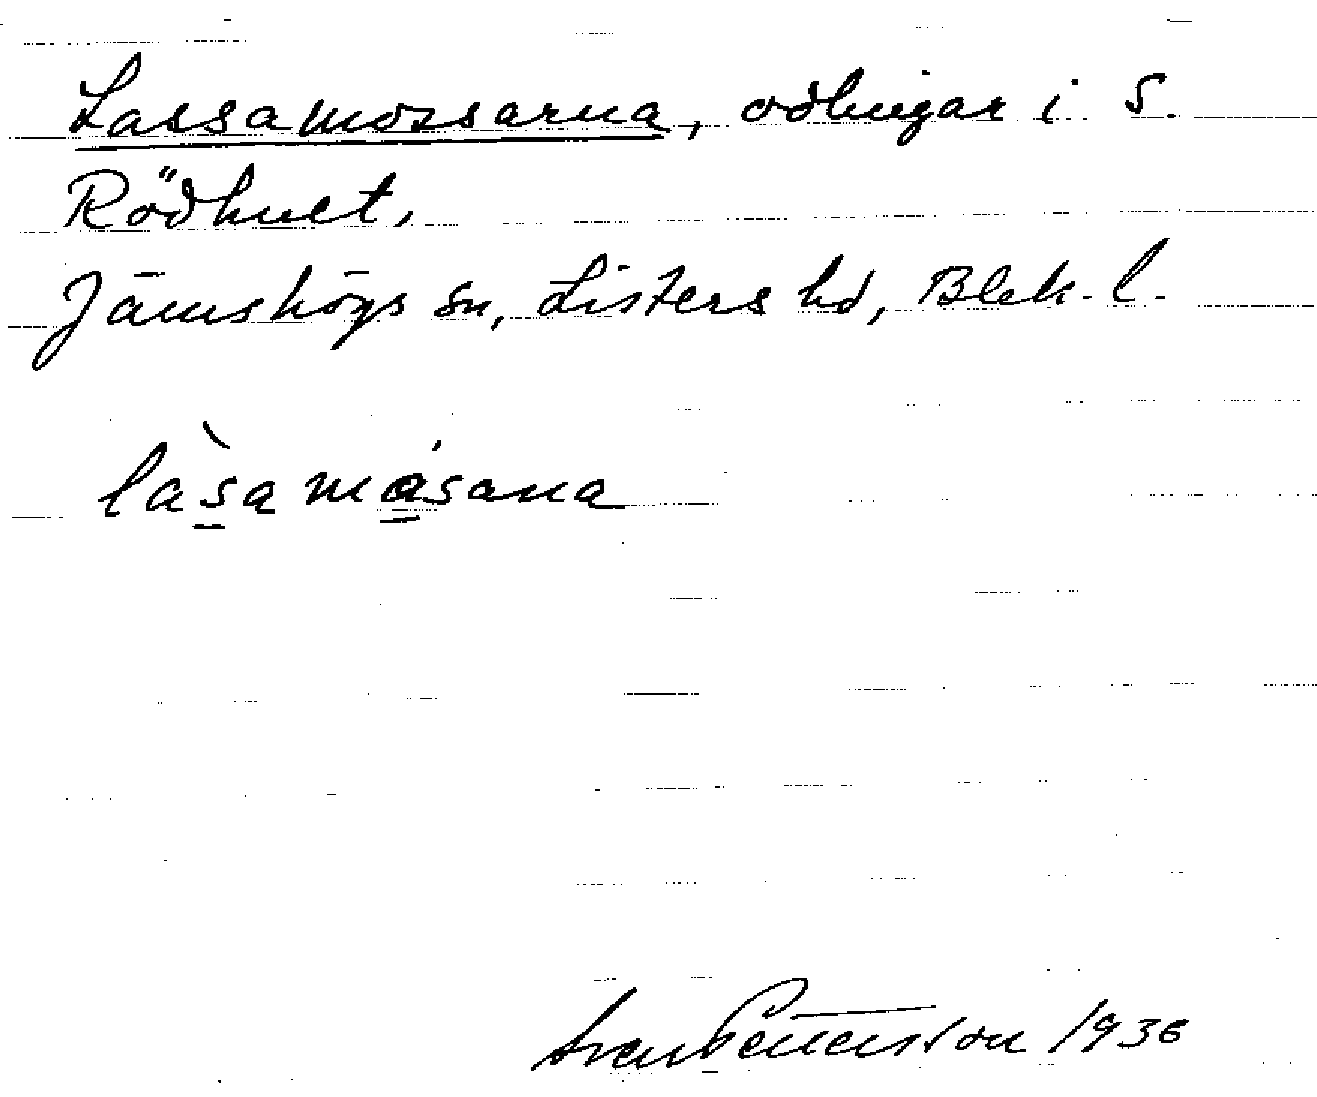 Lassamossarna, odlingar i S.
Rödhult,
Jämshögs sn, Listers hd, Blek. l.
làsamǻsana
Sven Pettersson 1936